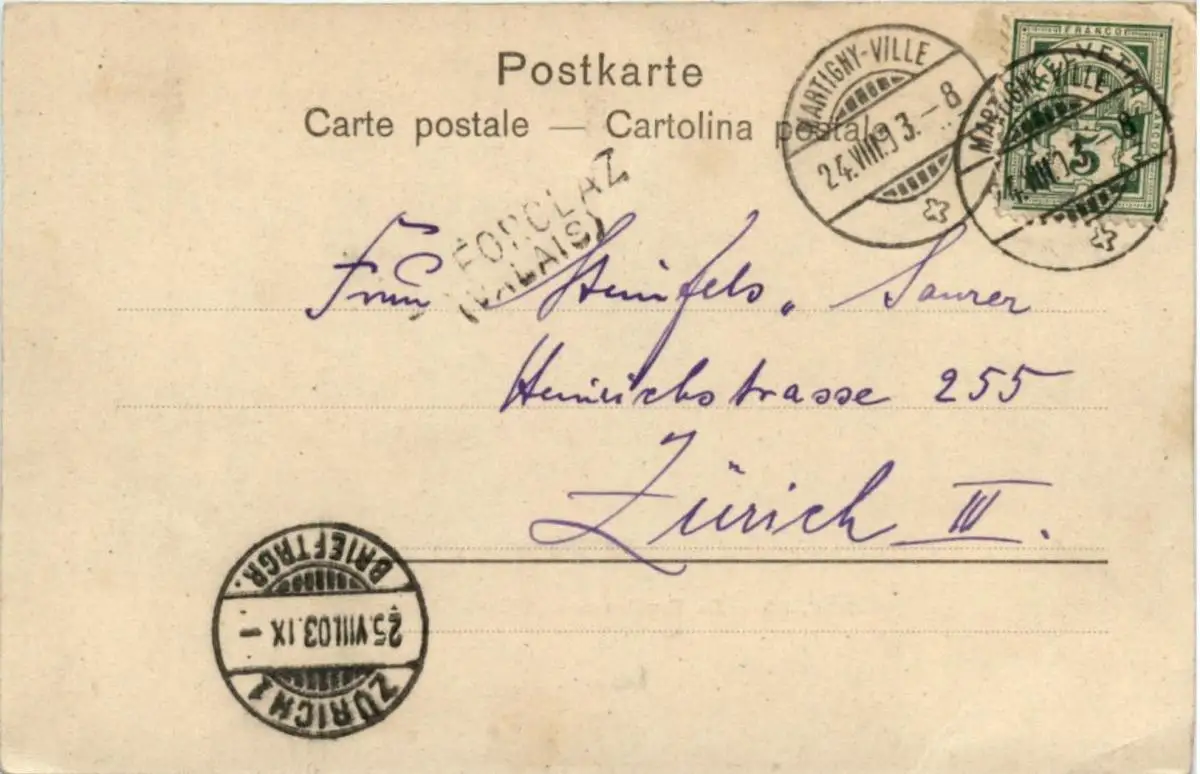 Postkarte
Carte postale — Cartolina postale
FRANCO
HELVETIA
5
MARTIGNY-VILLE
24.VIII.93.-8
MARTIGNY-VILLE
24.VIII.03.-8
FORCLAZ
(VALAIS)
Frau Steinfels-Saurer
Heinrichstrasse 255
Zürich III.
ZÜRICH 1
25.VIII.03.IX-
BRIEFTRGR.